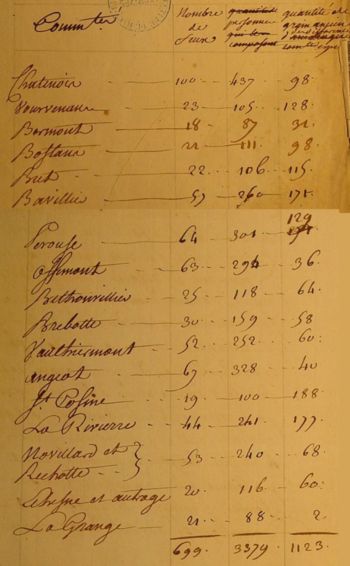 Nombre quantité de
de personnes grain
feux composent
Chatenois 100 437 98
Vourvenans 23 105 128
Bermont 18 87
Bostans 22 111 98
Buc 22 106 115
Bavillier 57 260 171
129
Perouse 64 301
Offemont 63 294 36
Bethonvillier 25 118 64
Brebotte 30 159 58
Vauthiermont 52 252 60
angeot 69 328 40
St. Cosme 19 100 188
La Rivierre 44 241 177
Novillard et
Rechotte } 53 240 68
Chesne et autrage 20 116 60
La Grange 21 88 2
693 3379 1123